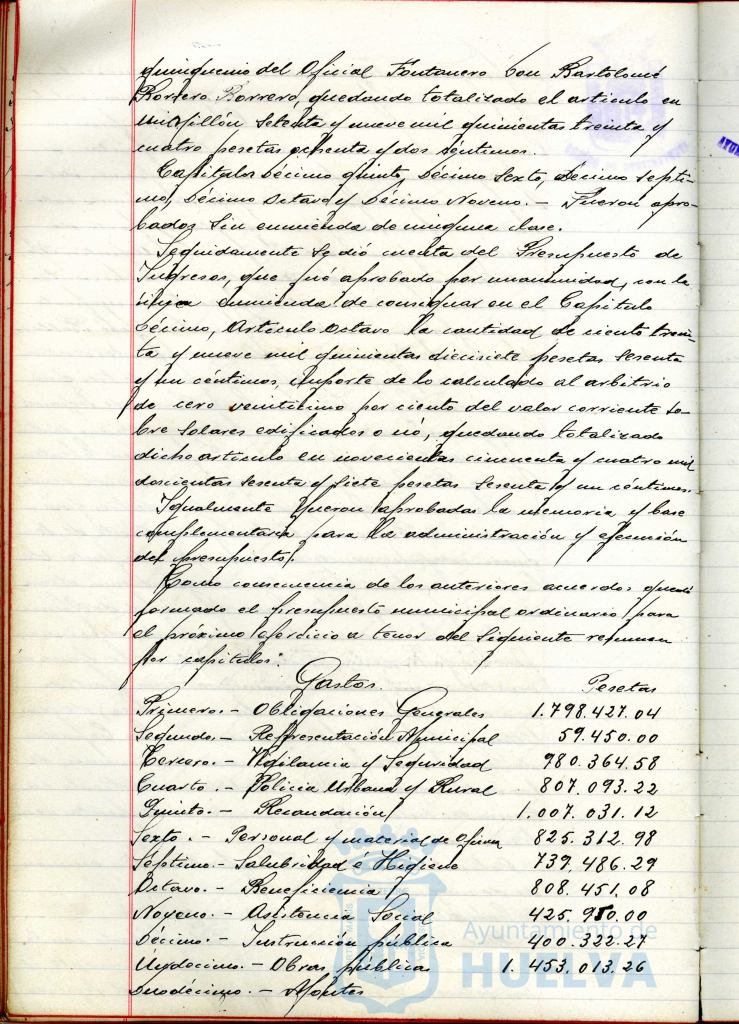 quinquenio del Oficial Fontanero Don Bartolomé
Borrero Borrero, quedando totalizado el articulo en
un millón setenta y nueve mil quinientas treinta y
cuatro pesetas ochenta y dos céntimos.
Capitulos Décimo quinto, Décimo Sexto, Décimo Septi-
mo, Décimo Octavo y Décimo Noveno.- Fueron apro-
bados sin enmienda de ninguna clase.
Seguidamente se dió cuenta del Presupuesto de
Ingresos, que fué aprobado por unanimidad, con la
única enmienda de consignar en el Capitulo
Décimo, Articulo Octavo la cantidad de ciento trein-
ta y nueve mil quinientas diecisiete pesetas sesenta
y un céntimos, importe de lo calculado al arbitrio
de cero veinticinco por ciento del valor corriente so-
bre solares edificados o nó, quedando totalizado
dicho articulo en novecientas cincuenta y cuatro mil
doscientas sesenta y siete pesetas sesenta y un céntimos
Igualmente fueron aprobadas la memoria y base
complementaria para la administración y ejecución
del presupuesto.
Como consecuencia de los anteriores acuerdos quedó
formado el presupuesto municipal ordinario para
el próximo ejercicio a tenor del siguiente resumen
por capitulos:
Gastos. Pesetas
Primero.- Obligaciones Generales 1.798.427.04
Segundo.- Representación Municipal 59.450.00
Tercero.- Vigilancia y Seguridad 980.364.58
Cuarto.- Policia Urbana y Rural 807.093.22
Quinto.- Recaudación 1.007.031.12
Sexto.- Personal y material de Oficina 825.312.98
Séptimo.- Salubridad é Higiene 739.486.29
Octavo.- Beneficiencia 808.451.08
Noveno.- Asistencia Social 425.950.00
Décimo.- Instrucción pública 400.322.27
Undécimo.- Obras públicas 1.453.013.26
Duodécimo.- Montes
Ayuntamiento de
HUELVA